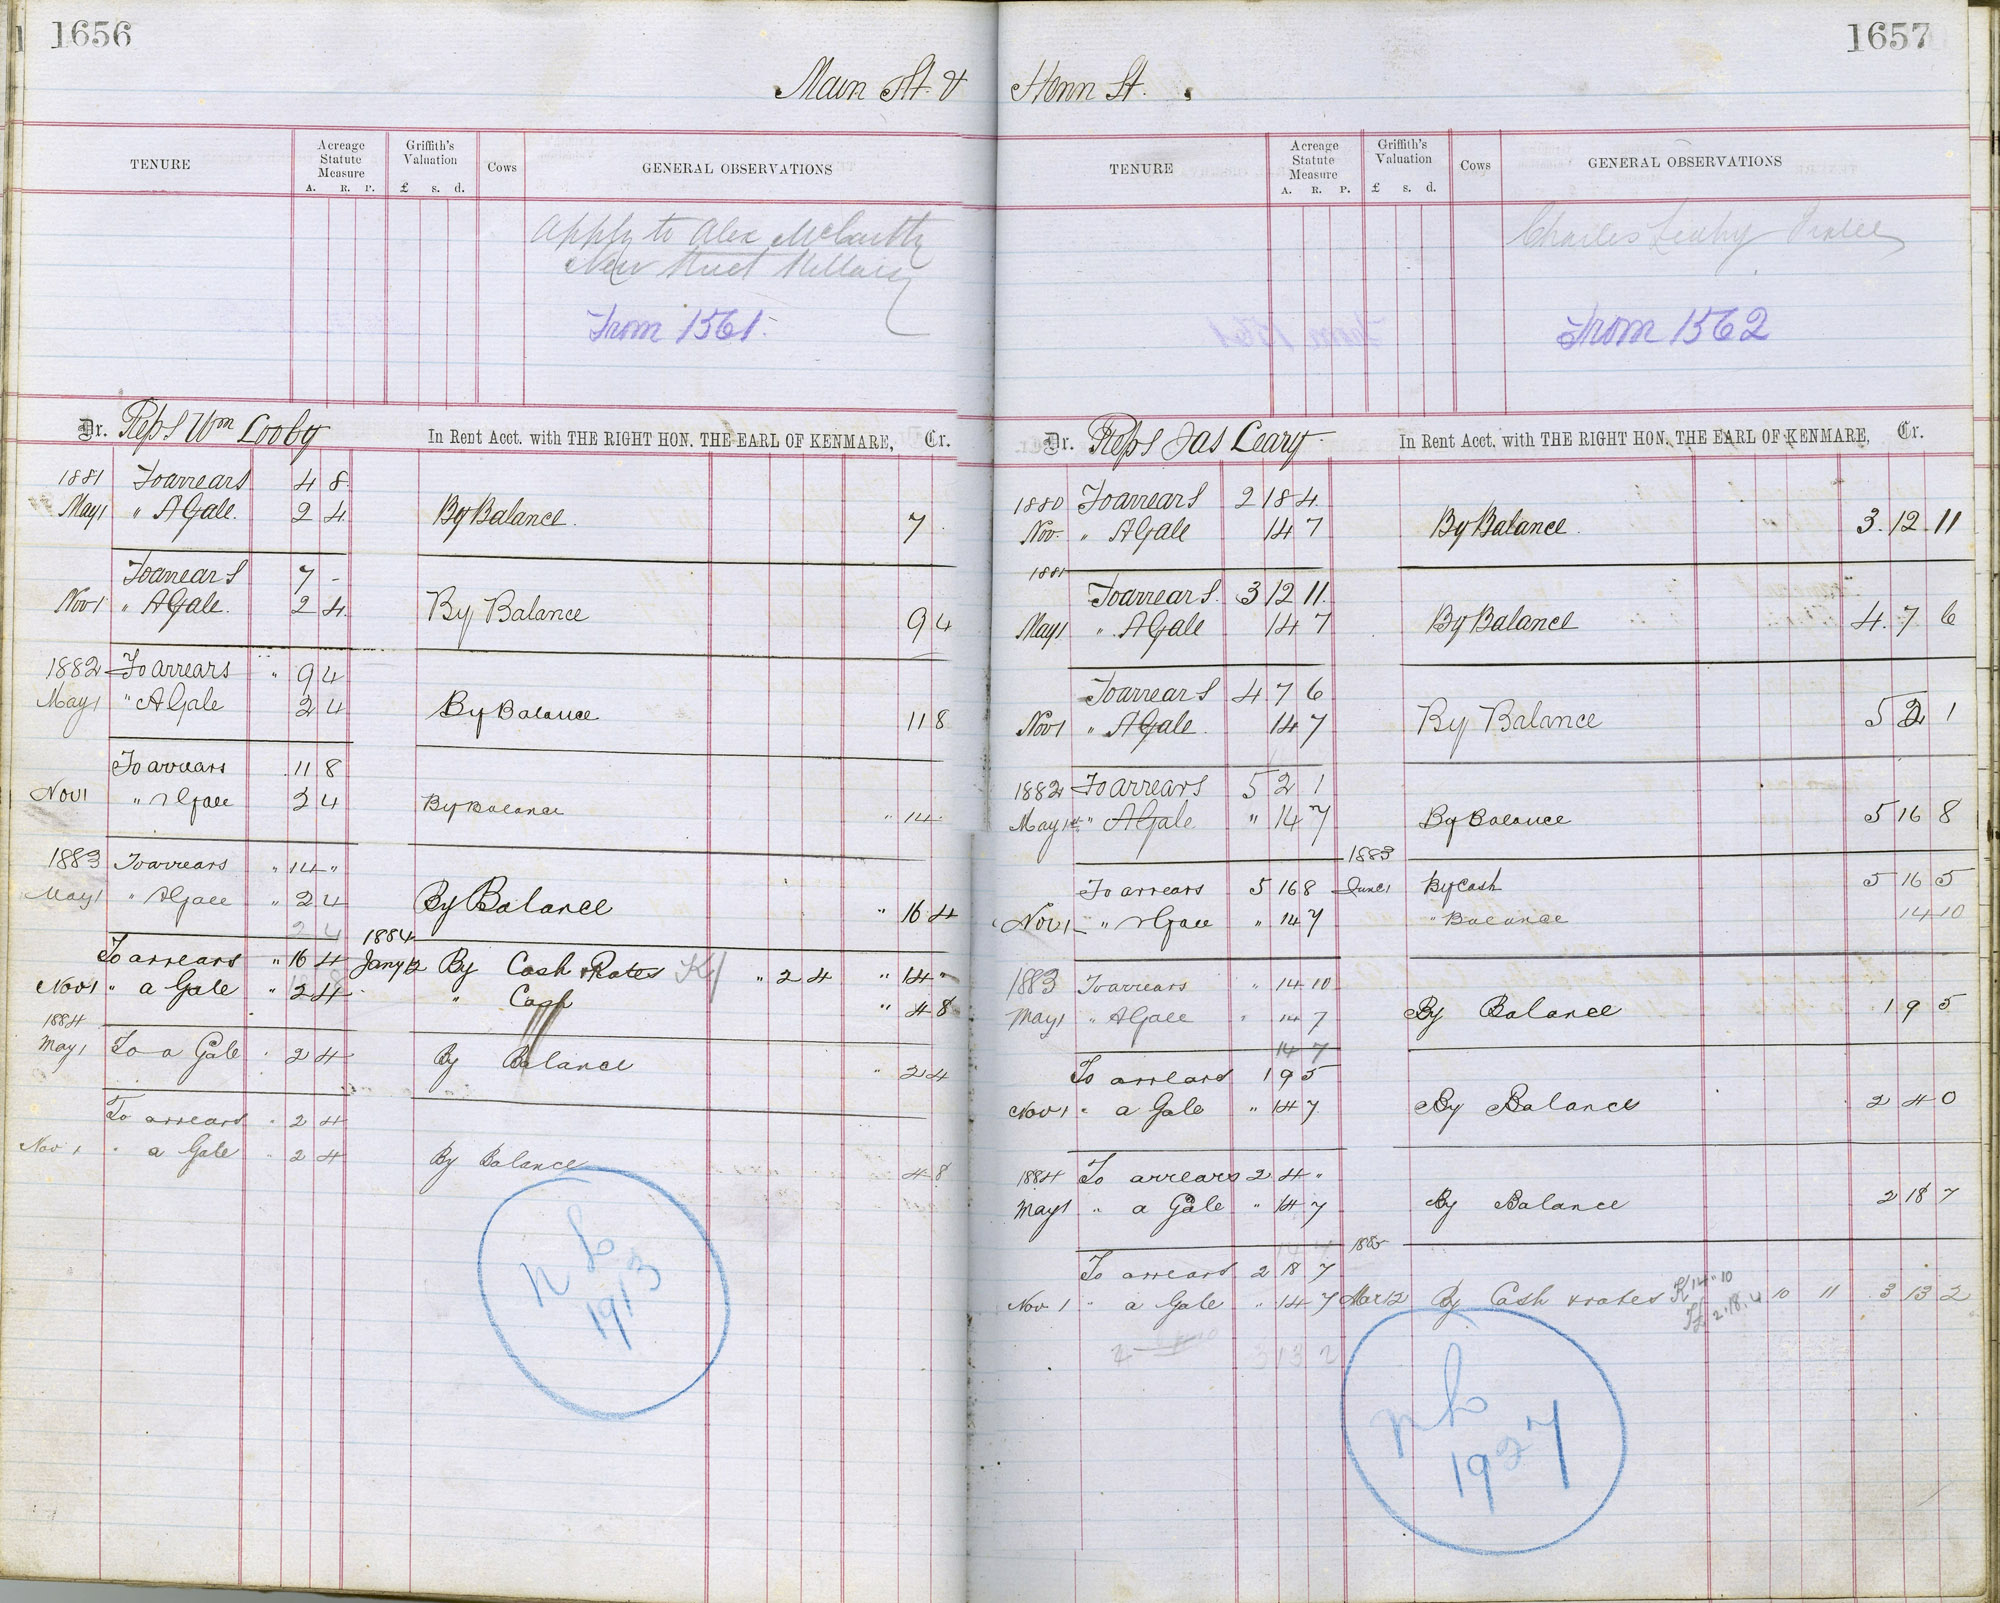 1656
Main St. &
TENURE
Acreage Statute Measure
A. R. P.
Griffith's Valuation
£ s. d.
Cows
GENERAL OBSERVATIONS
Apply to Alex McCarthy
New Street Killarney
From 1561
Dr. Reps Wm Looby In Rent Acct. with THE RIGHT HON. THE EARL OF KENMARE, Cr.
1881 To arrears 4 8
May 1 " A Gale 2 4 By Balance 7
To arrears 7 -
Nov 1 " A Gale 2 4 By Balance 9 4
1882 To arrears " 9 4
May 1 " A Gale 2 4 By Balance 11 8
To arrears 11 8
Nov 1 " A Gale 2 4 By Balance " 14
1883 To arrears " 14 "
May 1 " A Gale " 2 4 By Balance " 16 4
2 4
1884
To arrears " 16 4 Jany 12 By Cash & Rates K " 2 4 " 14 "
Nov 1 " a Gale " 2 4 " Cash " 4 8
1884
May 1 To a Gale " 2 4 By Balance " 2 4
To arrears " 2 4
Nov 1 " a Gale " 2 4 By Balance 4 8
1913
1657
Henn St.
TENURE
Acreage Statute Measure
A. R. P.
Griffith's Valuation
£ s. d.
Cows
GENERAL OBSERVATIONS
Charles Leahy Tralee
From 1562
Dr. Reps Jas Leary In Rent Acct. with THE RIGHT HON. THE EARL OF KENMARE, Cr.
1880 To arrears 2 18 4
Nov. " A Gale 14 7 By Balance 3 12 11
1881
To arrears 3 12 11
May 1 " A Gale 14 7 By Balance 4 7 6
To arrears 4 7 6
Nov 1 " A Gale 14 7 By Balance 5 2 1
1882 To arrears 5 2 1
May 1st " A Gale " 14 7 By Balance 5 16 8
1883
To arrears 5 16 8 June 1 By Cash 5 16 5
Nov 1 " A Gale " 14 7 " Balance 14 10
1883 To arrears " 14 10
May 1 " A Gale " 14 7 By Balance 1 9 5
14 7
To arrears 1 9 5
Nov 1 " a Gale " 14 7 By Balance 2 4 0
1884 To arrears 2 4 "
May 1 " a Gale " 14 7 By Balance 2 18 7
1885
To arrears 2 18 7
Nov 1 " a Gale " 14 7 Mar 12 By Cash & rates K 14 " 10 10 11 3 13 2
2 . 18 . 4
3 13 2
1927